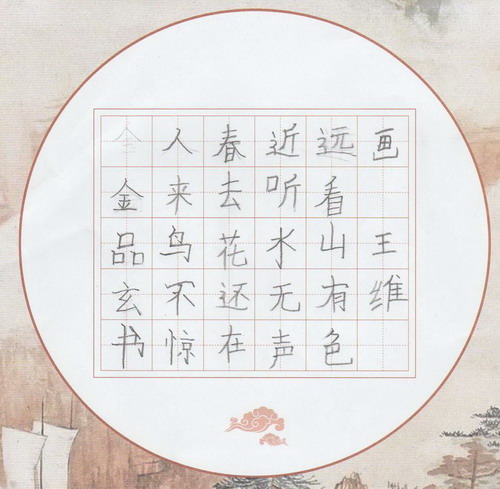 画 王维
远看山有色
近听水无声
春去花还在
人来鸟不惊
金品玄书